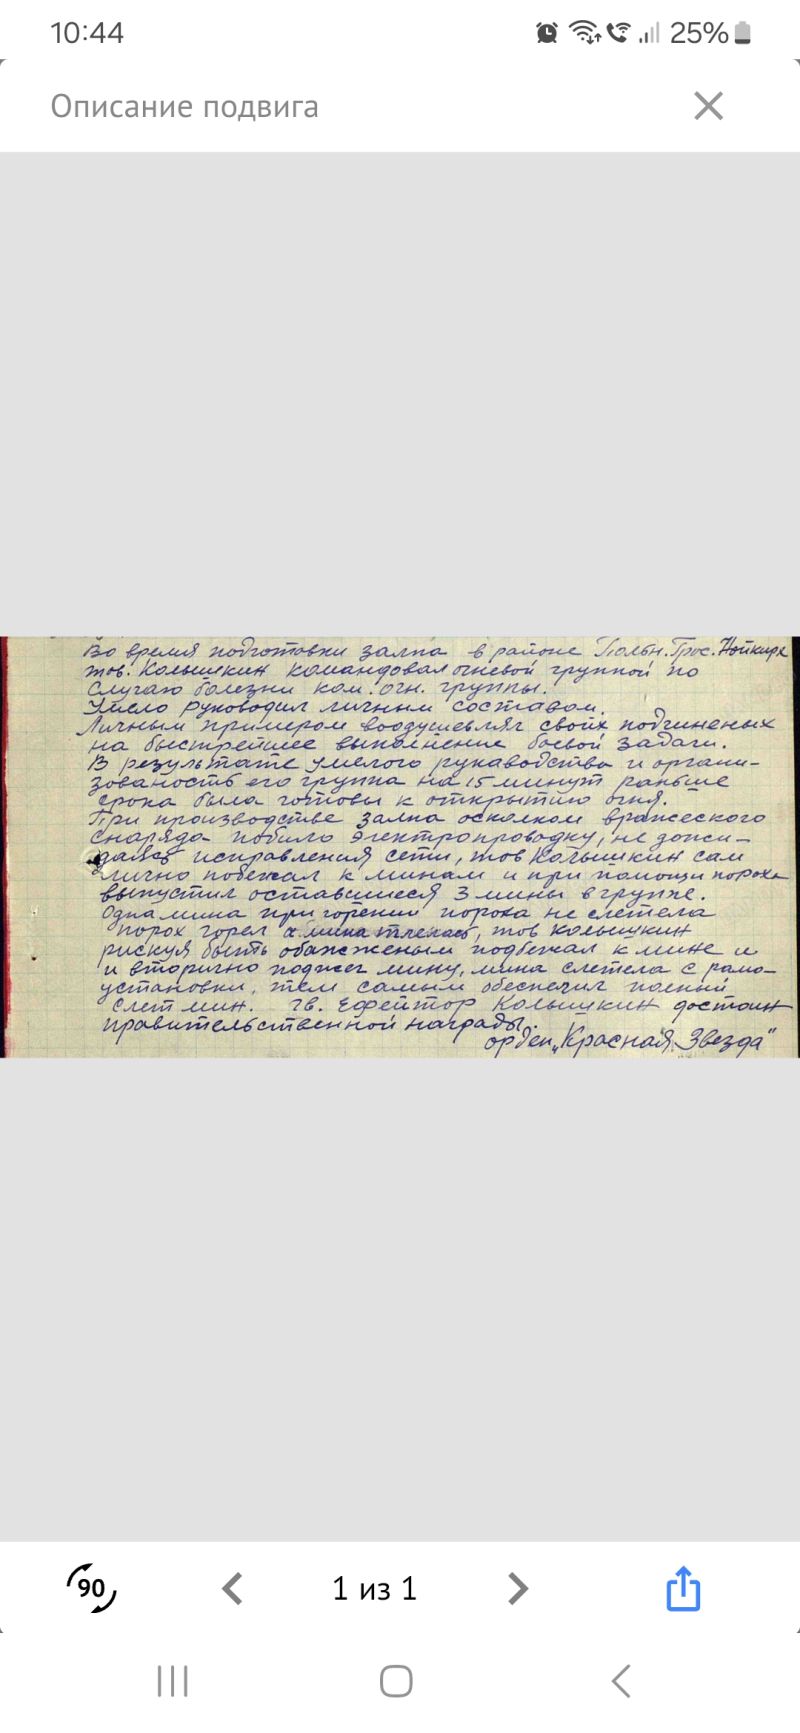 10:44
25%
Описание подвига
Во время подготовки залпа в районе Польн. Грос. Нойкирх
тов. Колышкин командовал огневой группой по
случаю болезни ком. огн. группы.
Умело руководил личным составом.
Личным примером воодушевлял своих подчиненых
на быстрейшее выполнение боевой задачи.
В результате умелого рукаводства и органи-
зованость его группа на 15 минут раньше
срока была готовы к открытию огня.
При производстве залпа осколком вражеского
снаряда побило электропроводку, не дожи-
даяс исправления сети, тов Колышкин сам
лично побежал к минам и при помощи пороха
выпустил оставшиеся 3 мины в группе.
Одна мина при горении пороха не слетела
порох горел а мина тлелась, тов Колышкин
рискуя быть обажженым подбежал к мине и
и вторично поджег мину, мина слетела с рамо-
установки, тем самым обеспечил полный
слет мин. гв. Ефрейтор Колышкин достоин
правительственной награды.
орден „Красная Звезда"
90
1 из 1